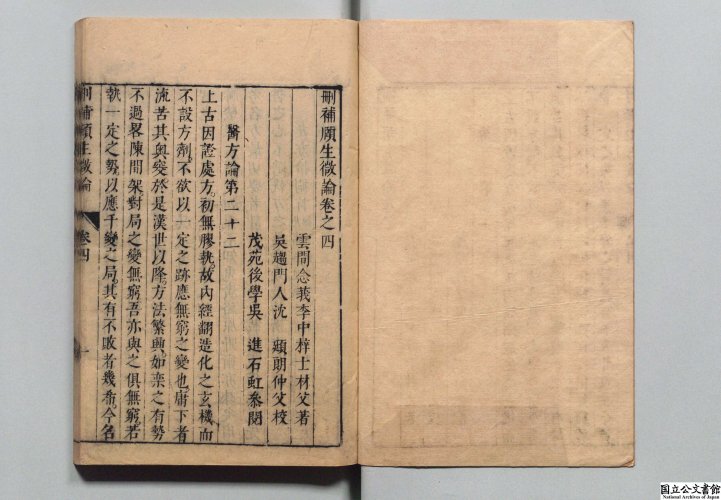 刪補頤生微論卷之四
雲間念莪李中梓士材父著
吳趨門人沈　頲朗仲父校
茂苑後學吳　進石虹參閱
醫方論第二十二
上古因證處方初無膠執故內經翻造化之玄機而
不設方劑不欲以一定之跡應無窮之變也庸下者
流苦其奧變於是漢世以降方法繁興如棊之有勢
不過畧陳間架對局之變無窮吾亦與之俱無窮若
執一定之勢以應千變之局其有不敗者幾希今名
刪補頤生微論　卷四　一
国立公文書館
National Archives of Japan